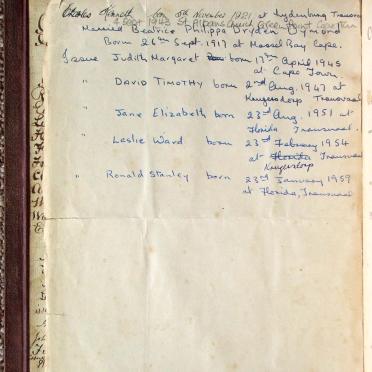 Charles Kenneth born 5th November 1921 at Lydenburg Transvaal
at Sept 1943 St Albans Church Green Point Cape Town
Married Beatrice Philippa Dryden Dymond
Born 26th Sept. 1917 at Mossel Bay Cape.
Issue Judith Margaret born 17th April 1945
at Cape Town
" DAVID TIMOTHY born 2nd Aug. 1947 at
Krugersdorp Transvaal
" Jane Elizabeth born 23rd Aug. 1951 at
Florida Transvaal.
" Leslie Ward born 23rd February 1954
at Florida Transvaal
Krugersdorp
" Ronald Stanley born 23rd January 1959
at Florida, Transvaal